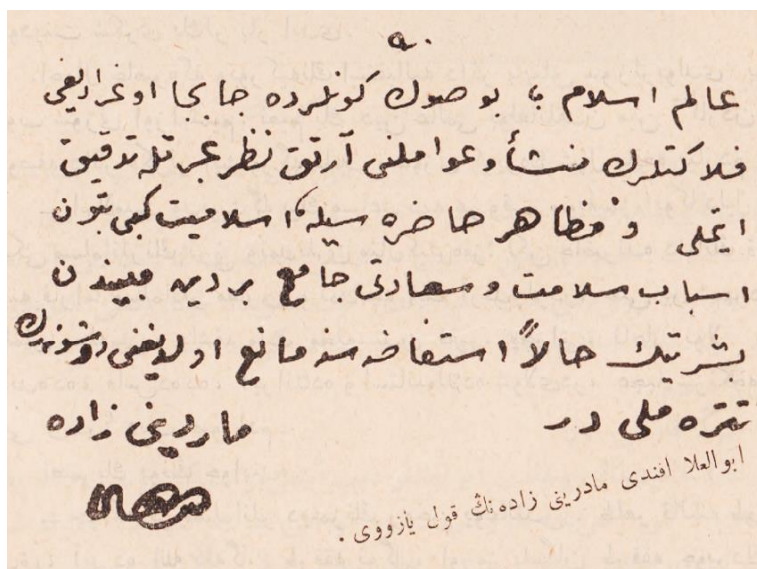 ٩٠
عالم اسلام ، بو صوك كونلرده جابجا اوغرادیغی
فلاكتلرك منشأ و عواملنی آرتق نظر عبرتله تدقیق
ایتملی و مظاهر حاضره سیله، اسلامیت كبی بتون
اسباب سلامت و سعادتی جامع بر دین مبیندن
بشریتك حالاً استفاضه سنه مانع اولدیغنی دوشونه‌رك
تتره ملی در
ماردینی زاده
ابوالعلا افندی مادرینی زاده‌نڭ قول یازووی .